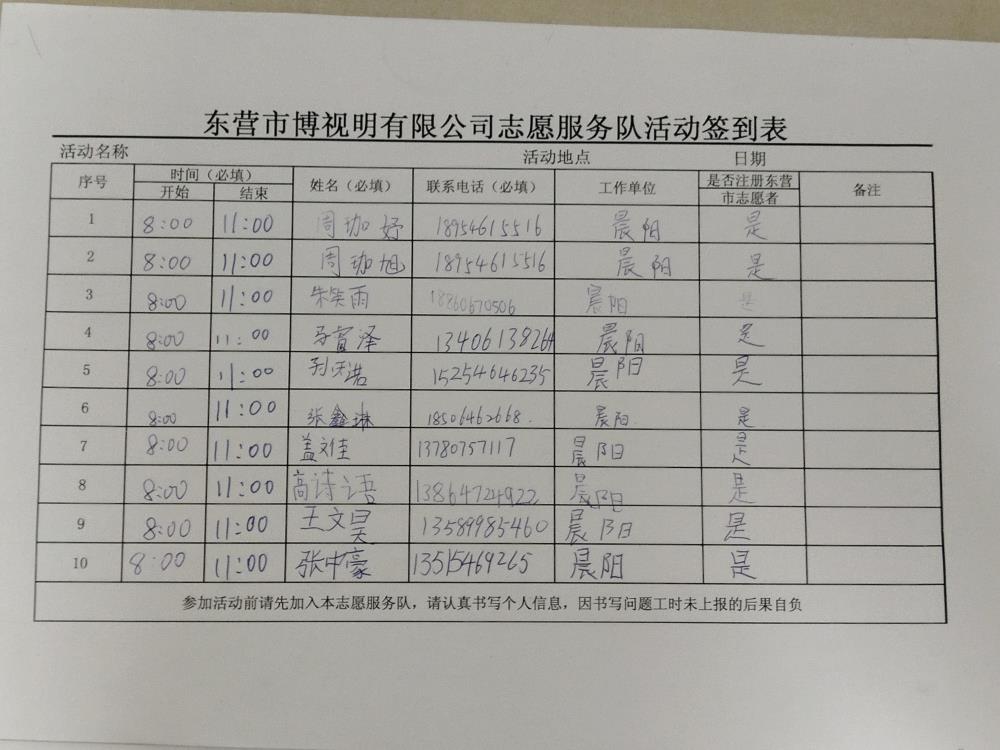 东营市博视明有限公司志愿服务队活动签到表
活动名称 活动地点 日期
序号 时间（必填） 开始 结束 姓名（必填） 联系电话（必填） 工作单位 是否注册东营市志愿者 备注
1 8:00 11:00 周珈妤 18954615516 晨阳 是
2 8:00 11:00 周珈旭 18954615516 晨阳 是
3 8:00 11:00 朱笑雨 18860670506 晨阳 是
4 8:00 11:00 富泽 13406138264 晨阳 是
5 8:00 11:00 孙 诺 15254646235 晨阳 是
6 8:00 11:00 张鑫琳 18506462668 晨阳 是
7 8:00 11:00 盖文佳 13780757117 晨阳 是
8 8:00 11:00 高诗语 13864724922 晨阳 是
9 8:00 11:00 王文昊 13589985460 晨阳 是
10 8:00 11:00 张中豪 13515469265 晨阳 是
参加活动前请先加入本志愿服务队，请认真书写个人信息，因书写问题工时未上报的后果自负